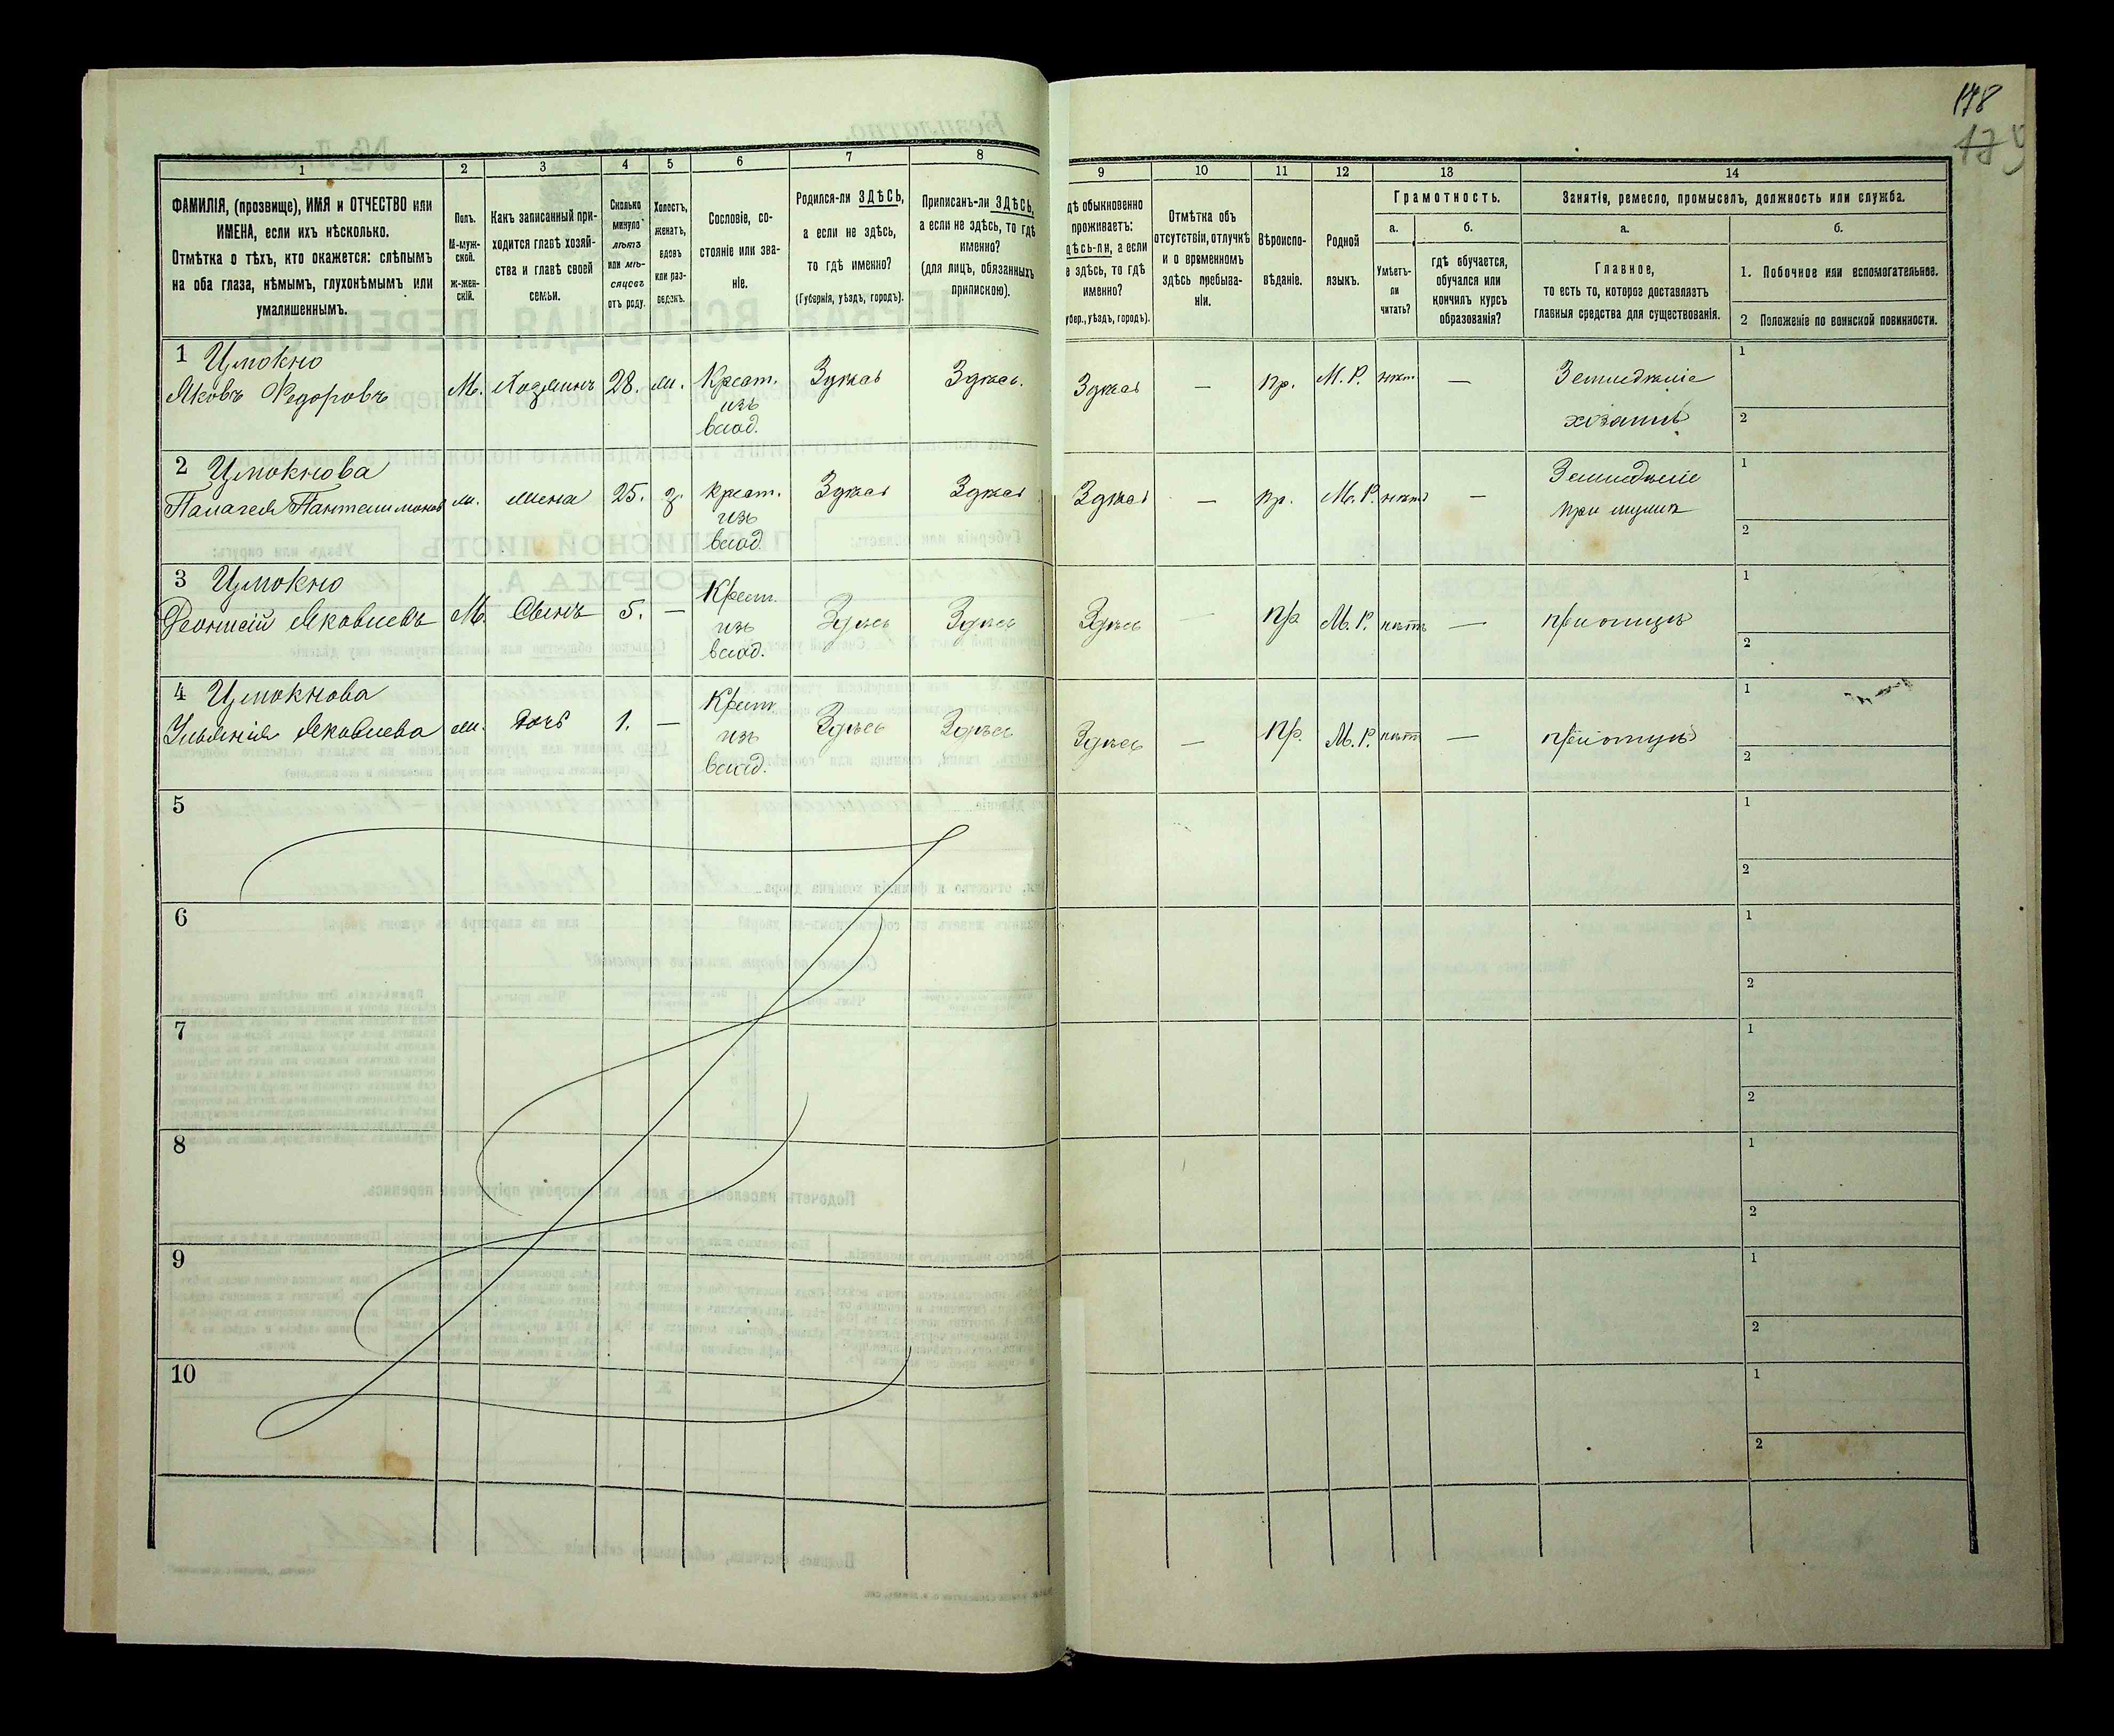 178
175
1
2
3
4
5
6
7
8
9
10
11
12
13
14
ФАМИЛІЯ, (прозвище), ИМЯ и ОТЧЕСТВО или
ИМЕНА, если ихъ нѣсколько.
Отмѣтка о тѣхъ, кто окажется: слѣпымъ
на оба глаза, нѣмымъ, глухонѣмымъ или
умалишеннымъ.
Полъ.
М-муж-
ской.
Ж-жен-
скій.
Какъ записанный при-
ходится главѣ хозяй-
ства и главѣ своей
семьи.
Сколько
минуло
лѣтъ
или мѣ-
сяцевъ
отъ роду.
Холостъ,
женатъ,
вдовъ
или раз-
веденъ.
Сословіе, со-
стояніе или зва-
ніе.
Родился-ли ЗДѢСЬ,
а если не здѣсь,
то гдѣ именно?
(Губернія, уѣздъ, городъ).
Приписанъ-ли ЗДѢСЬ,
а если не здѣсь, то гдѣ
именно?
(для лицъ, обязанныхъ
припискою).
дѣ обыкновенно
проживаетъ:
дѣсь-ли, а если
е здѣсь, то гдѣ
именно?
убер., уѣздъ, городъ).
Отмѣтка объ
отсутствіи, отлучкѣ
и о временномъ
здѣсь пребыва-
ніи.
Вѣроиспо-
вѣданіе.
Родной
языкъ.
Грамотность.
а.
Умѣетъ-
ли
читать?
б.
гдѣ обучается,
обучался или
кончилъ курсъ
образованія?
Занятія, ремесло, промыселъ, должность или служба.
а.
Главное,
то есть то, которое доставляетъ
главныя средства для существованія.
б.
1. Побочное или вспомогательное.
2 Положеніе по воинской повинности.
1 Цмокно
Яковъ Федоровъ
М. Хозяинъ 28. ж. Крест.
изъ
влад.
Здѣсь Здѣсь. Здѣсь — пр. М. Р. нѣтъ — Земледѣліе
хозяинъ
1
2
2 Цмокнова
Палагея Пантелимонов
ж. жена 25. з. крест.
изъ
влад.
Здѣсь Здѣсь Здѣсь — пр. М. Р. нѣтъ — Земледѣліе
при мужѣ
1
2
3 Цмокно
Деонисій Яковлевъ
М. Сынъ 5. — Крест.
изъ
влад.
Здѣсь Здѣсь Здѣсь — пр. М. Р. нѣтъ — при отцѣ
1
2
4 Цмокнова
Ульянія Яковлева
ж. дочь 1. — Крест.
изъ
влад.
Здѣсь Здѣсь Здѣсь — пр. М. Р. нѣтъ — при отцѣ
1
2
5
1
2
6
1
2
7
1
2
8
1
2
9
1
2
10
1
2